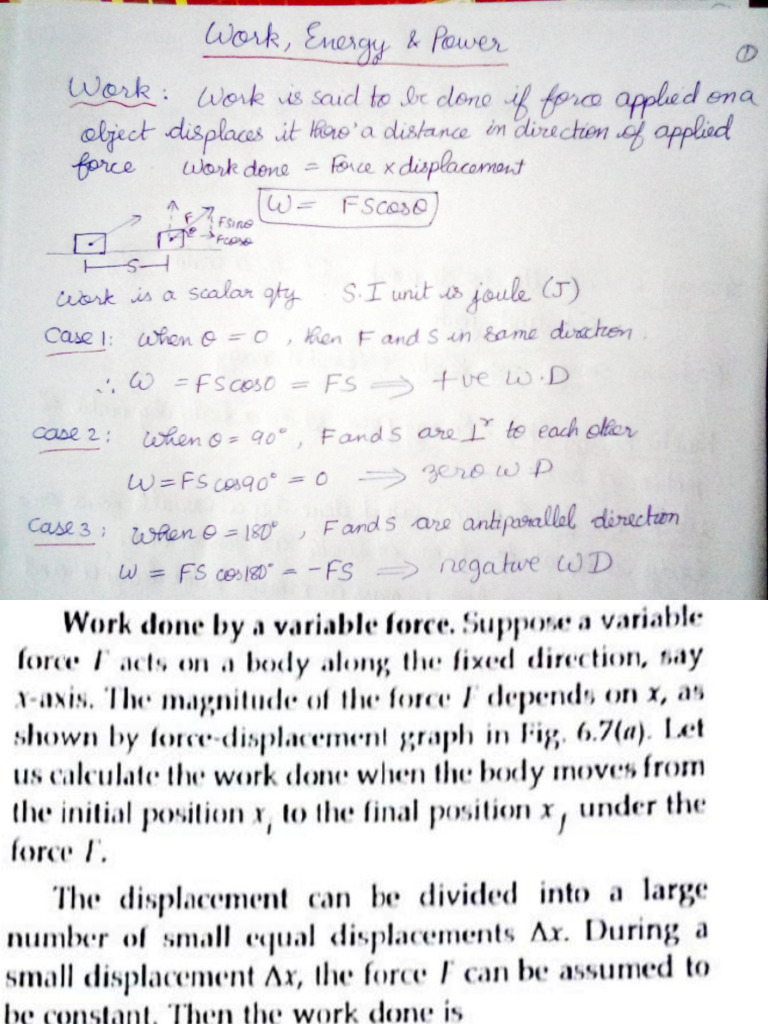 Work, Energy & Power
①
Work: Work is said to be done if force applied on a
object displaces it thro' a distance in direction of applied
force Work done = Force x displacement
W = FScosθ
F Fsinθ
θ Fcosθ
S
Work is a scalar qty. S.I unit is joule (J)
Case 1: When θ = 0, then F and S in same direction.
∴ W = FScos0 = FS ⟹ +ve W.D
Case 2: When θ = 90°, F and S are ⊥r to each other
W = FS cos90° = 0 ⟹ zero W D
Case 3: When θ = 180°, F and S are antiparallel direction
W = FS cos180° = -FS ⟹ negative WD
Work done by a variable force. Suppose a variable
force F acts on a body along the fixed direction, say
x-axis. The magnitude of the force F depends on x, as
shown by force-displacement graph in Fig. 6.7(a). Let
us calculate the work done when the body moves from
the initial position xi to the final position xf under the
force F.
The displacement can be divided into a large
number of small equal displacements Δx. During a
small displacement Δx, the force F can be assumed to
be constant. Then the work done is